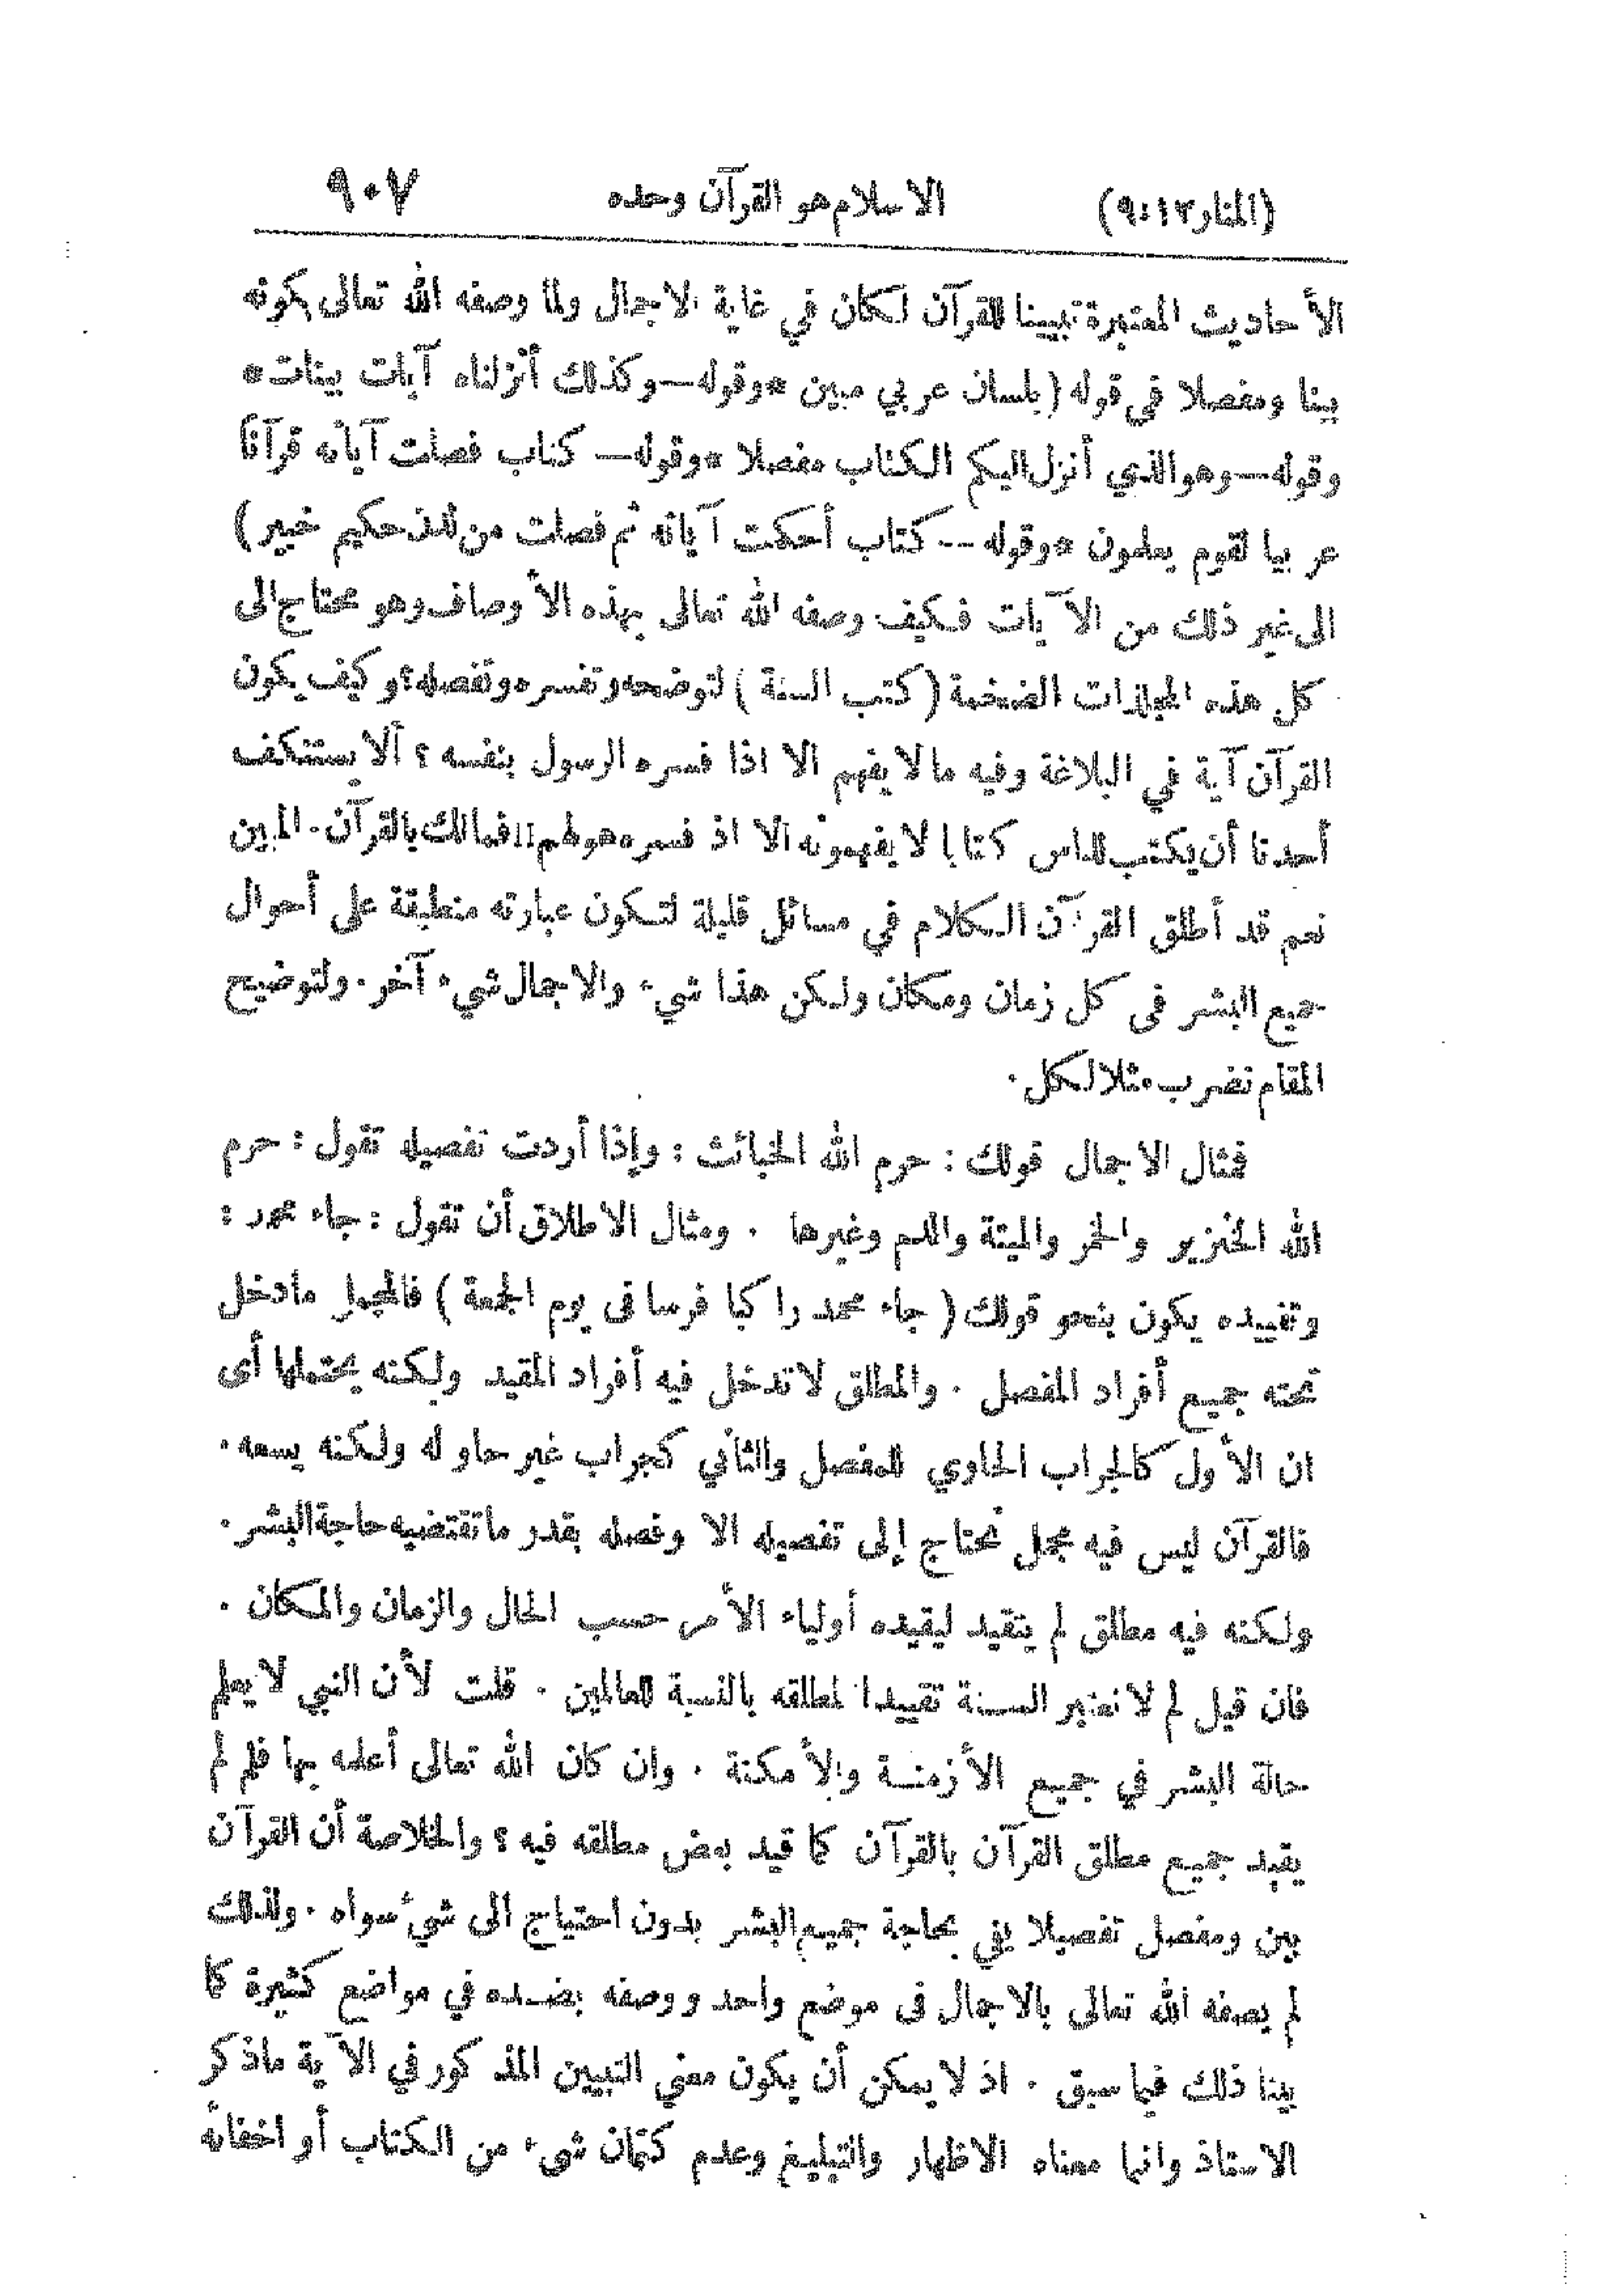 (المنار١٢:٩) الاسلام هو القرآن وحده ٩٠٧
الأحاديث المعتبرة تبيينا للقرآن لكان في غاية الاجمال ولما وصفه الله تعالى بكونه
بينا ومفصلا في قوله (بلسان عربي مبين *وقوله—وكذلك أنزلناه آيات بينات*
وقوله—وهو الذي أنزل اليكم الكتاب مفصلا *وقوله— كتاب فصلت آياته قرآناً
عربيا لقوم يعلمون *وقوله -- كتاب أحكمت آياته ثم فصلت من لدن حكيم خبير)
الى غير ذلك من الآيات فكيف وصفه الله تعالى بهذه الأوصاف وهو محتاج الى
كل هذه المجلدات الضخمة (كتب السنة) لتوضحه وتفسره وتفصله؟ وكيف يكون
القرآن آية في البلاغة وفيه مالا يفهم الا اذا فسره الرسول بنفسه ؟ ألا يستنكف
أحدنا أن يكتب للناس كتابا لا يفهمونه الا اذ فسره هو لهم!! فما لك بالقرآن. المبين
نعم قد أطلق القرآن الكلام في مسائل قليلة لتكون عبارته منطبقة على أحوال
جميع البشر فى كل زمان ومكان ولكن هذا شيء والاجمال شيء آخر. ولتوضيح
المقام نضرب مثلا لكل.
فمثال الاجمال قولك : حرم الله الخبائث : وإذا أردت تفصيله تقول : حرم
الله الخنزير والخمر والميتة والدم وغيرها . ومثال الاطلاق أن تقول : جاء محمد :
وتقييده يكون بنحو قولك ( جاء محمد راكبا فرسا فى يوم الجمعة ) فالمجمل مادخل
تحته جميع أفراد المفصل . والمطلق لا تدخل فيه أفراد المقيد ولكنه يحتملها أى
ان الأول كالجراب الحاوي للمفصل والثاني كجراب غير حاو له ولكنه يسعه.
فالقرآن ليس فيه مجمل نحتاج إلى تفصيله الا وفصله بقدر ما تقتضيه حاجة البشر.
ولكنه فيه مطلق لم يتقيد ليقيده أولياء الأمر حسب الحال والزمان والمكان .
فان قيل لم لا نعتبر السنة تقييدا لمطلقه بالنسبة للعالمين . قلت لأن النبي لا يعلم
حالة البشر في جميع الأزمنة والأمكنة . وان كان الله تعالى أعلمه بها فلم لم
يقيد جميع مطلق القرآن بالقرآن كما قيد بعض مطلقه فيه ؟ والخلاصة أن القرآن
بين ومفصل تفصيلا يفي بحاجة جميع البشر بدون احتياج الى شيء سواه . ولذلك
لم يصفه الله تعالى بالاجمال فى موضع واحد ووصفه بضده في مواضع كثيرة كما
بينا ذلك فيما سبق . اذ لا يمكن أن يكون معنى التبيين المذكور في الآية ماذكر
الاستاذ وانما معناه الاظهار والتبليغ وعدم كتمان شيء من الكتاب أو اخفائه